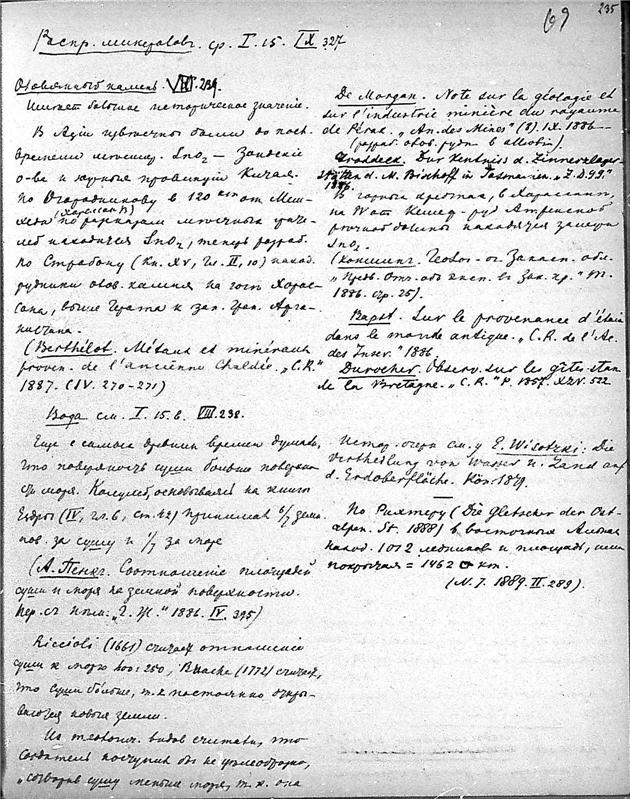 69
235
Распр. минералов. ср. I. 15. IX. 327
Оловянный камень. VIII. 239.
Имеет большое историческое значение.
В Азии известны были до посл.
времени SnO₂ — Зондские
о-ва и провинции Китая.
По Огородникову в 120 км от Меш-
хеда (Хорассан) по рассказам местных
находится SnO₂, теперь разраб.
По Страбону (Кн. XV, Гл. II, 10) наход.
рудники олов. камня на юге Хорас-
сана, выше Герата к зап. гран. Афга-
нистана.
(Berthélot. Métaux et minéraux
proven. de l'ancienne Chaldée. „C.R."
1887. (IV. 270-271)
Вода см. I. 15. VIII. 238.
Еще с самых древних времен думали,
что поверхность суши больше поверхно-
сти моря. Колумб, основываясь на книге
Ездры (IV, гл. 6, ст. 42) принимал 6/7 земн.
пов. за сушу и 1/7 за море
(А. Пенк. Соотношение площадей
суши и моря на земной поверхности.
Пер. съ нем. 1886. IV. 395)
Riccioli (1661) считает отношение
суши к морю 250, Buache (1772) считает,
что суши больше, т. к. постоянно откры-
ваются новые земли.
Из теолог. видов считали, что
Создатель поступил бы не целесообразно,
„сотворив сушу меньше моря, т. к. она
De Morgan. Note sur la géologie et
sur l'industrie minière du royaume
de Pérak. „An. des Mines" (8). IX. 1886
(разраб. олов. руды в
Groddeck. Zur Kenntnis d. Zinnerzlager-
stätten d. M. Bischoff in Tasmanien. „Z.D.G.G."
1886.
В горных хребтах, в Хорассане,
на W от руд
речной долины находятся залежи
SnO₂.
(Коншин. Геолог. оч. Закасп. обл.
„Предв. Отч. об эксп. в Зак. кр." Т.
1886. Стр. 25).
Bapst. Sur la provenance d'étain
dans le monde antique. „C.R. de l'Ac.
des Inscr." 1886
Durocher. Observ. sur les gîtes étan.
de la Bretagne. „C.R." P. 1857. XLV. 522
Истор. очерк см. у E. Wisotzki: Die
Vertheilung von Wasser u. Land auf
d. Erdoberfläche. Kön. 1879.
По Рихтеру (Die Gletscher der Ost-
alpen. St. 1888) в восточных Альпах
наход. 1012 ледников и площадь, ими
покрытая = 1462 □ km.
(N. J. 1889. II. 289).